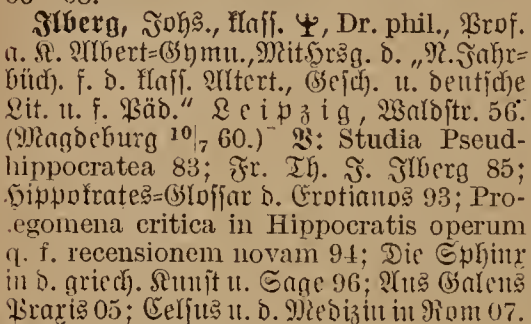 Ilberg, Johs., klass. Dr. phil., Prof.
a. K. Albert=Gymn., Mithrsg. d. „N. Jahr=
büch. f. d. klass. Altert., Gesch. u. deutsche
Lit. u. f. Päd.“ Leipzig, Waldstr. 56.
(Magdeburg 10|7 60.) V: Studia Pseud-
hippocratea 83; Fr. Th. F. Ilberg 85;
Hippokrates=Glossar d. Erotianos 93; Pro-
egomena critica in Hippocratis operum
q. f. recensionem novam 94; Die Sphinx
in d. griech. Kunst u. Sage 96; Aus Galens
Praxis 05; Celsus u. d. Medizin in Rom 07.